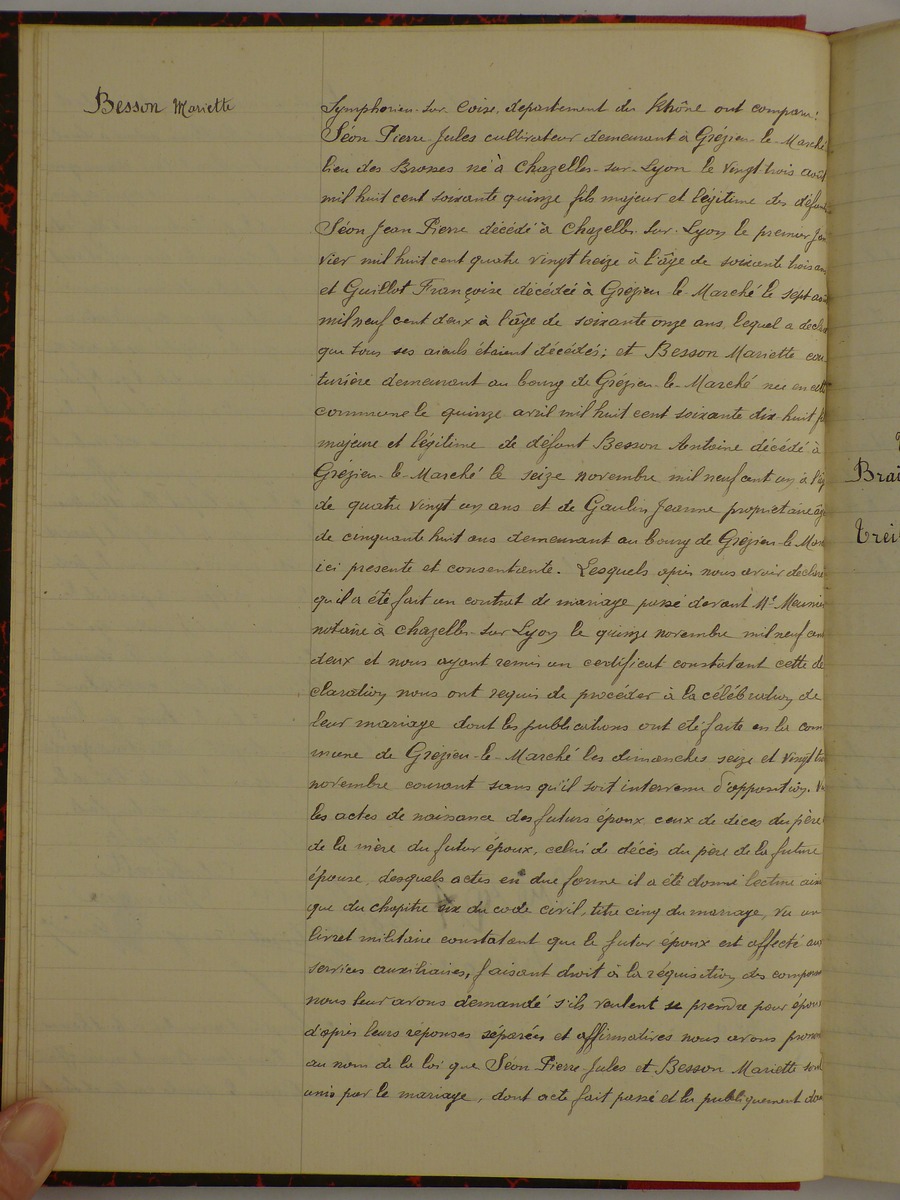 Besson Mariette
Symphorien-sur-Coise, departement du Rhône ont comparu:
Séon Pierre-Jules cultivateur demeurant à Grézieu-le-Marché
lieu des Brosses né à Chazelles-sur-Lyon le vingt-trois août
mil huit cent soixante quinze fils majeur et légitime des défunts
Séon Jean-Pierre décédé à Chazelles-sur-Lyon le premier Jan
vier mil huit cent quatre vingt treize à l'âge de soixante trois ans
et Guillot Françoise décédée à Grézieu-le-Marché le sept août
mil neuf cent deux à l'âge de soixante onze ans, lequel a declaré
que tous ses aieuls étaient décédés; et Besson Mariette cou
turière demeurant au bourg de Grézieu-le-Marché née en cette
commune le quinze avril mil huit cent soixante dix-huit
majeure et légitime de défunt Besson Antoine décédé à
Grézieu-le-Marché le seize novembre mil neuf cent un à l'âge
de quatre vingt un ans et de Gaulin Jeanne propriétaire
de cinquante huit ans demeurant au bourg de Grézieu-le-Mar
ici présente et consentante. Lesquels après nous avoir declaré
qu'il a été fait un contrat de mariage passé devant Me Meunier
notaire à Chazelles-sur-Lyon le quinze novembre mil neuf cent
deux et nous ayant remis un certificat constatant cette dé
claration nous ont requis de procéder à la célébration de
leur mariage dont les publications ont été faite en la com
mune de Grézieu-le-Marché les dimanches seize et vingt
novembre courant sans qu'il soit intervenu d'opposition. Vu
les actes de naissance des futurs époux ceux de deces du père
de la mère du futur époux, celui de décès du père de la future
épouse, desquels actes en due forme il a été donné lecture ain
que du chapitre six du code civil, titre cinq du mariage, vu un
livret militaire constatant que le futur époux est affecté aux
services auxiliaires, faisant droit à la réquisition des compar
nous leur avons demandé s'ils veulent se prendre pour époux
d'après leurs réponses séparées et affirmatives nous avons
au nom de la loi que Séon Pierre-Jules et Besson Mariette sont
unis par le mariage, dont acte fait passé et lu publiquement dans
Brai
Trei